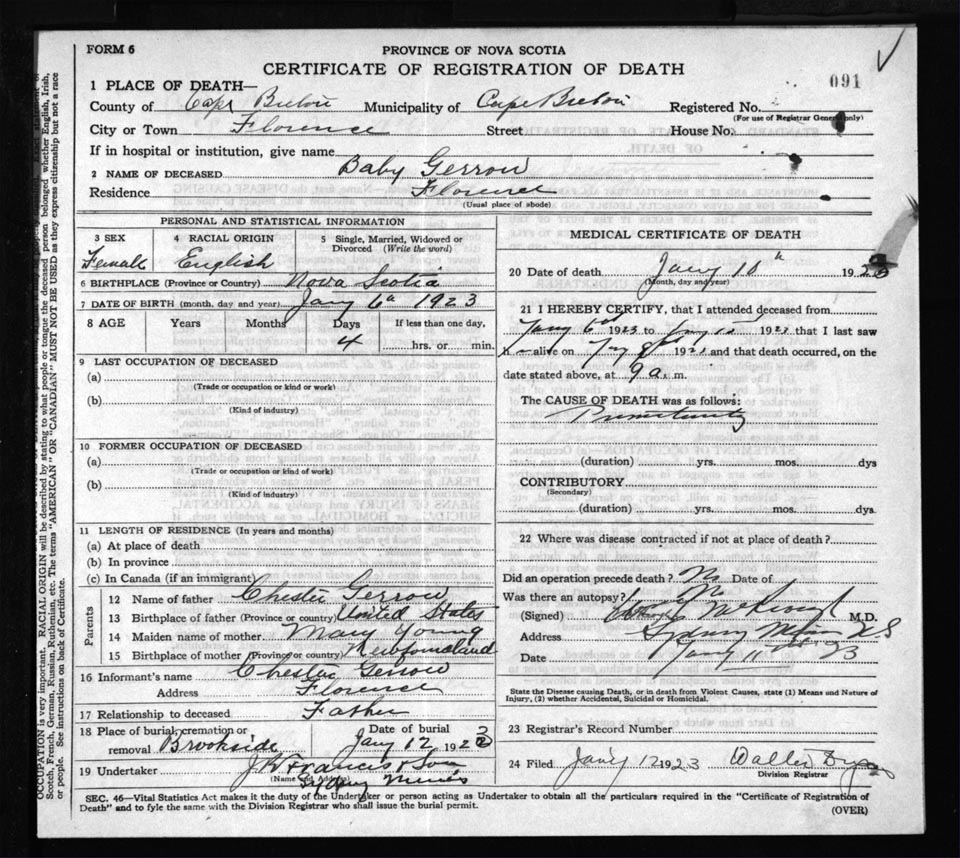 FORM 6
PROVINCE OF NOVA SCOTIA
CERTIFICATE OF REGISTRATION OF DEATH
091
1 PLACE OF DEATH—
County of Cape Breton Municipality of Cape Breton Registered No.
(For use of Registrar General only)
City or Town Florence Street House No.
If in hospital or institution, give name
2 NAME OF DECEASED Baby Gerrow
Residence Florence
(Usual place of abode)
PERSONAL AND STATISTICAL INFORMATION
3 SEX 4 RACIAL ORIGIN 5 Single, Married, Widowed or Divorced (Write the word)
Female English
6 BIRTHPLACE (Province or Country) Nova Scotia
7 DATE OF BIRTH (month, day and year) Jany 6th 1923
8 AGE Years Months Days If less than one day,
4 hrs. or min.
9 LAST OCCUPATION OF DECEASED
(a)
(Trade or occupation or kind or work)
(b)
(Kind of industry)
10 FORMER OCCUPATION OF DECEASED
(a)
(Trade or occupation or kind of work)
(b)
(Kind of industry)
11 LENGTH OF RESIDENCE (In years and months)
(a) At place of death
(b) In province
(c) In Canada (if an immigrant)
Parents
12 Name of father Chester Gerrow
13 Birthplace of father (Province or country) United States
14 Maiden name of mother Mary Young
15 Birthplace of mother (Province or country) Newfoundland
16 Informant's name Chester Gerrow
Address Florence
17 Relationship to deceased Father
18 Place of burial, cremation or removal Brookside Date of burial Jany 12 1923
19 Undertaker J H Francis & Son
(Name and Address)
Sydney Mines
MEDICAL CERTIFICATE OF DEATH
20 Date of death Jany 10th 1923
(Month, day and year)
21 I HEREBY CERTIFY, that I attended deceased from
Jany 6 1923 to Jany 10 192 that I last saw
alive on Jany 8 192 and that death occurred, on the
date stated above, at 9 a. m.
The CAUSE OF DEATH was as follows:
Prematurity
(duration) yrs. mos. dys
CONTRIBUTORY
(Secondary)
(duration) yrs. mos. dys.
22 Where was disease contracted if not at place of death?
Did an operation precede death? No Date of
Was there an autopsy? No
(Signed) M.D.
Address Sydney Mines N S
Date Jany 11 23
State the Disease causing Death, or in death from Violent Causes, state (1) Means and Nature of
Injury, (2) whether Accidental, Suicidal or Homicidal.
23 Registrar's Record Number
24 Filed Jan'y 12 1923 Walter
Division Registrar
SEC. 46—Vital Statistics Act makes it the duty of the Undertaker or person acting as Undertaker to obtain all the particulars required in the "Certificate of Registration of
Death" and to fyle the same with the Division Registrar who shall issue the burial permit.
(OVER)
OCCUPATION is very important. RACIAL ORIGIN will be described by stating to what people or tongue the deceased person belonged whether English, Irish,
Scotch, French, German, Russian, Ruthenian, etc. The terms "AMERICAN" OR "CANADIAN" MUST NOT BE USED as they express citizenship but not a race
or people. See instructions on back of Certificate.